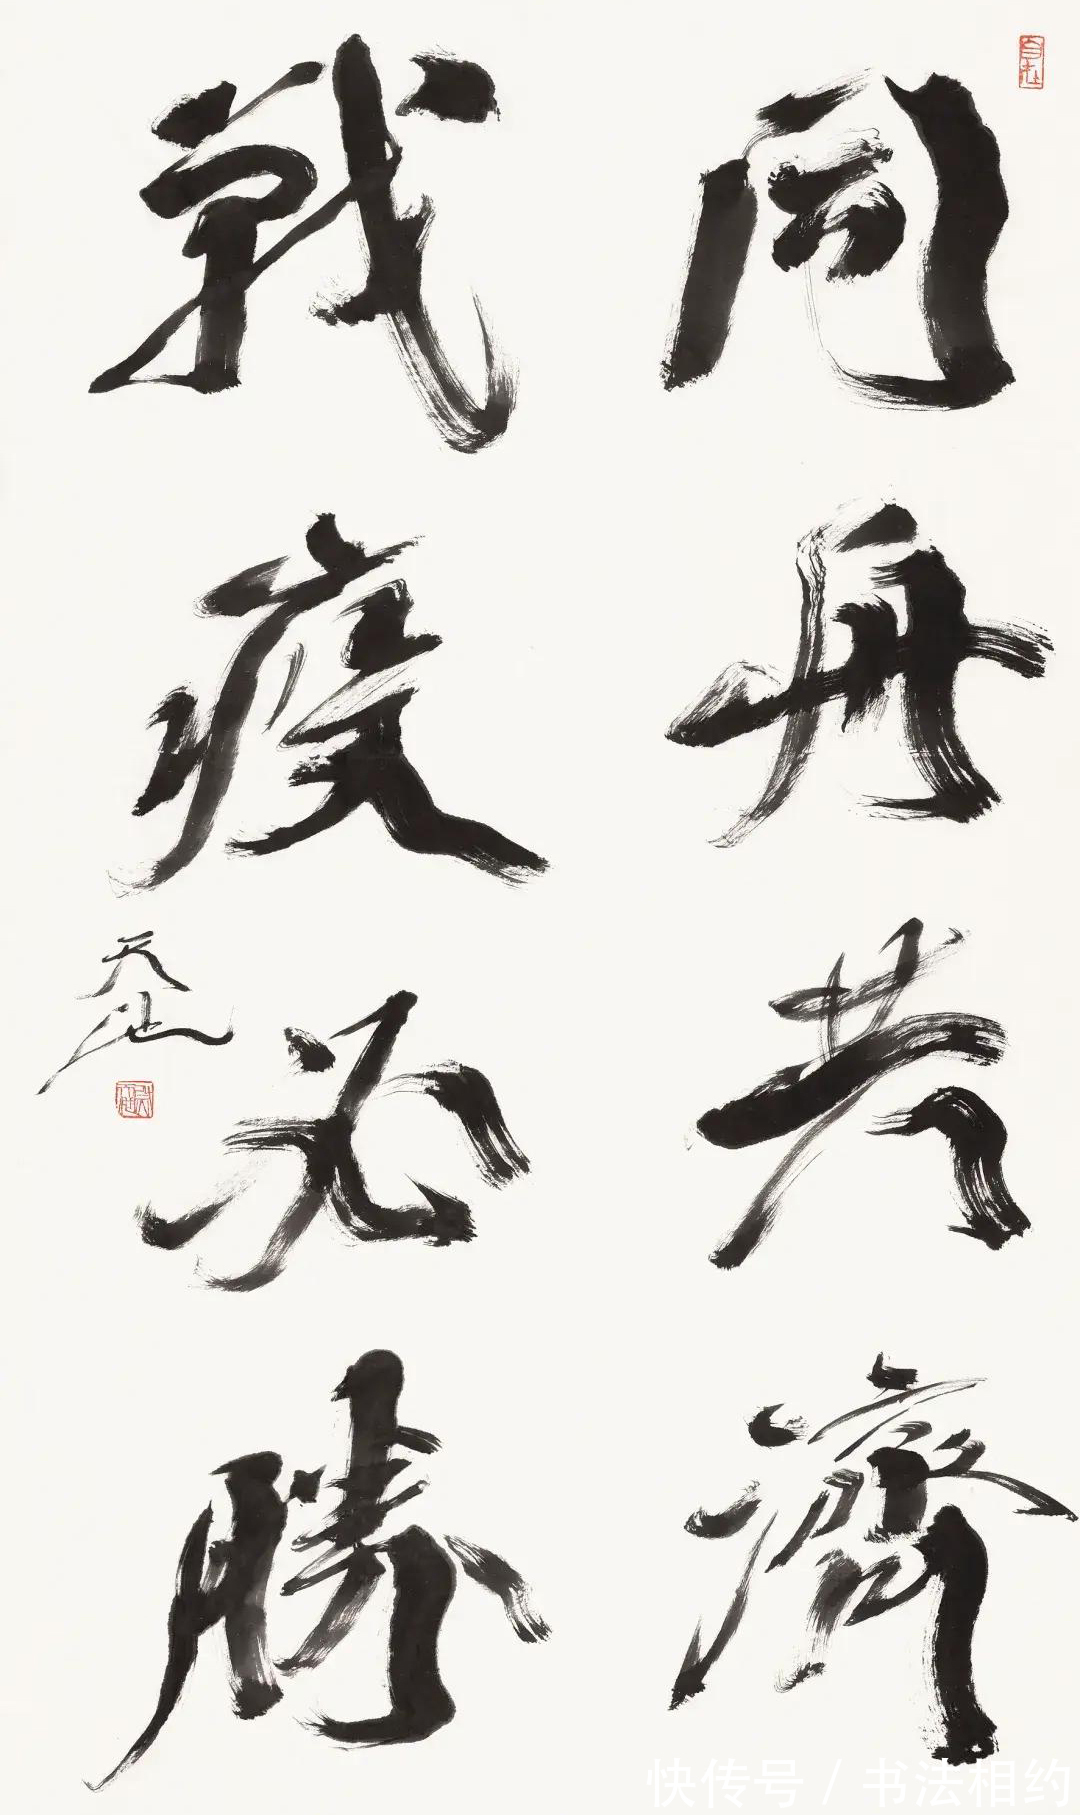 同舟共濟
戰疫必勝
天池
快传号 / 书法相约